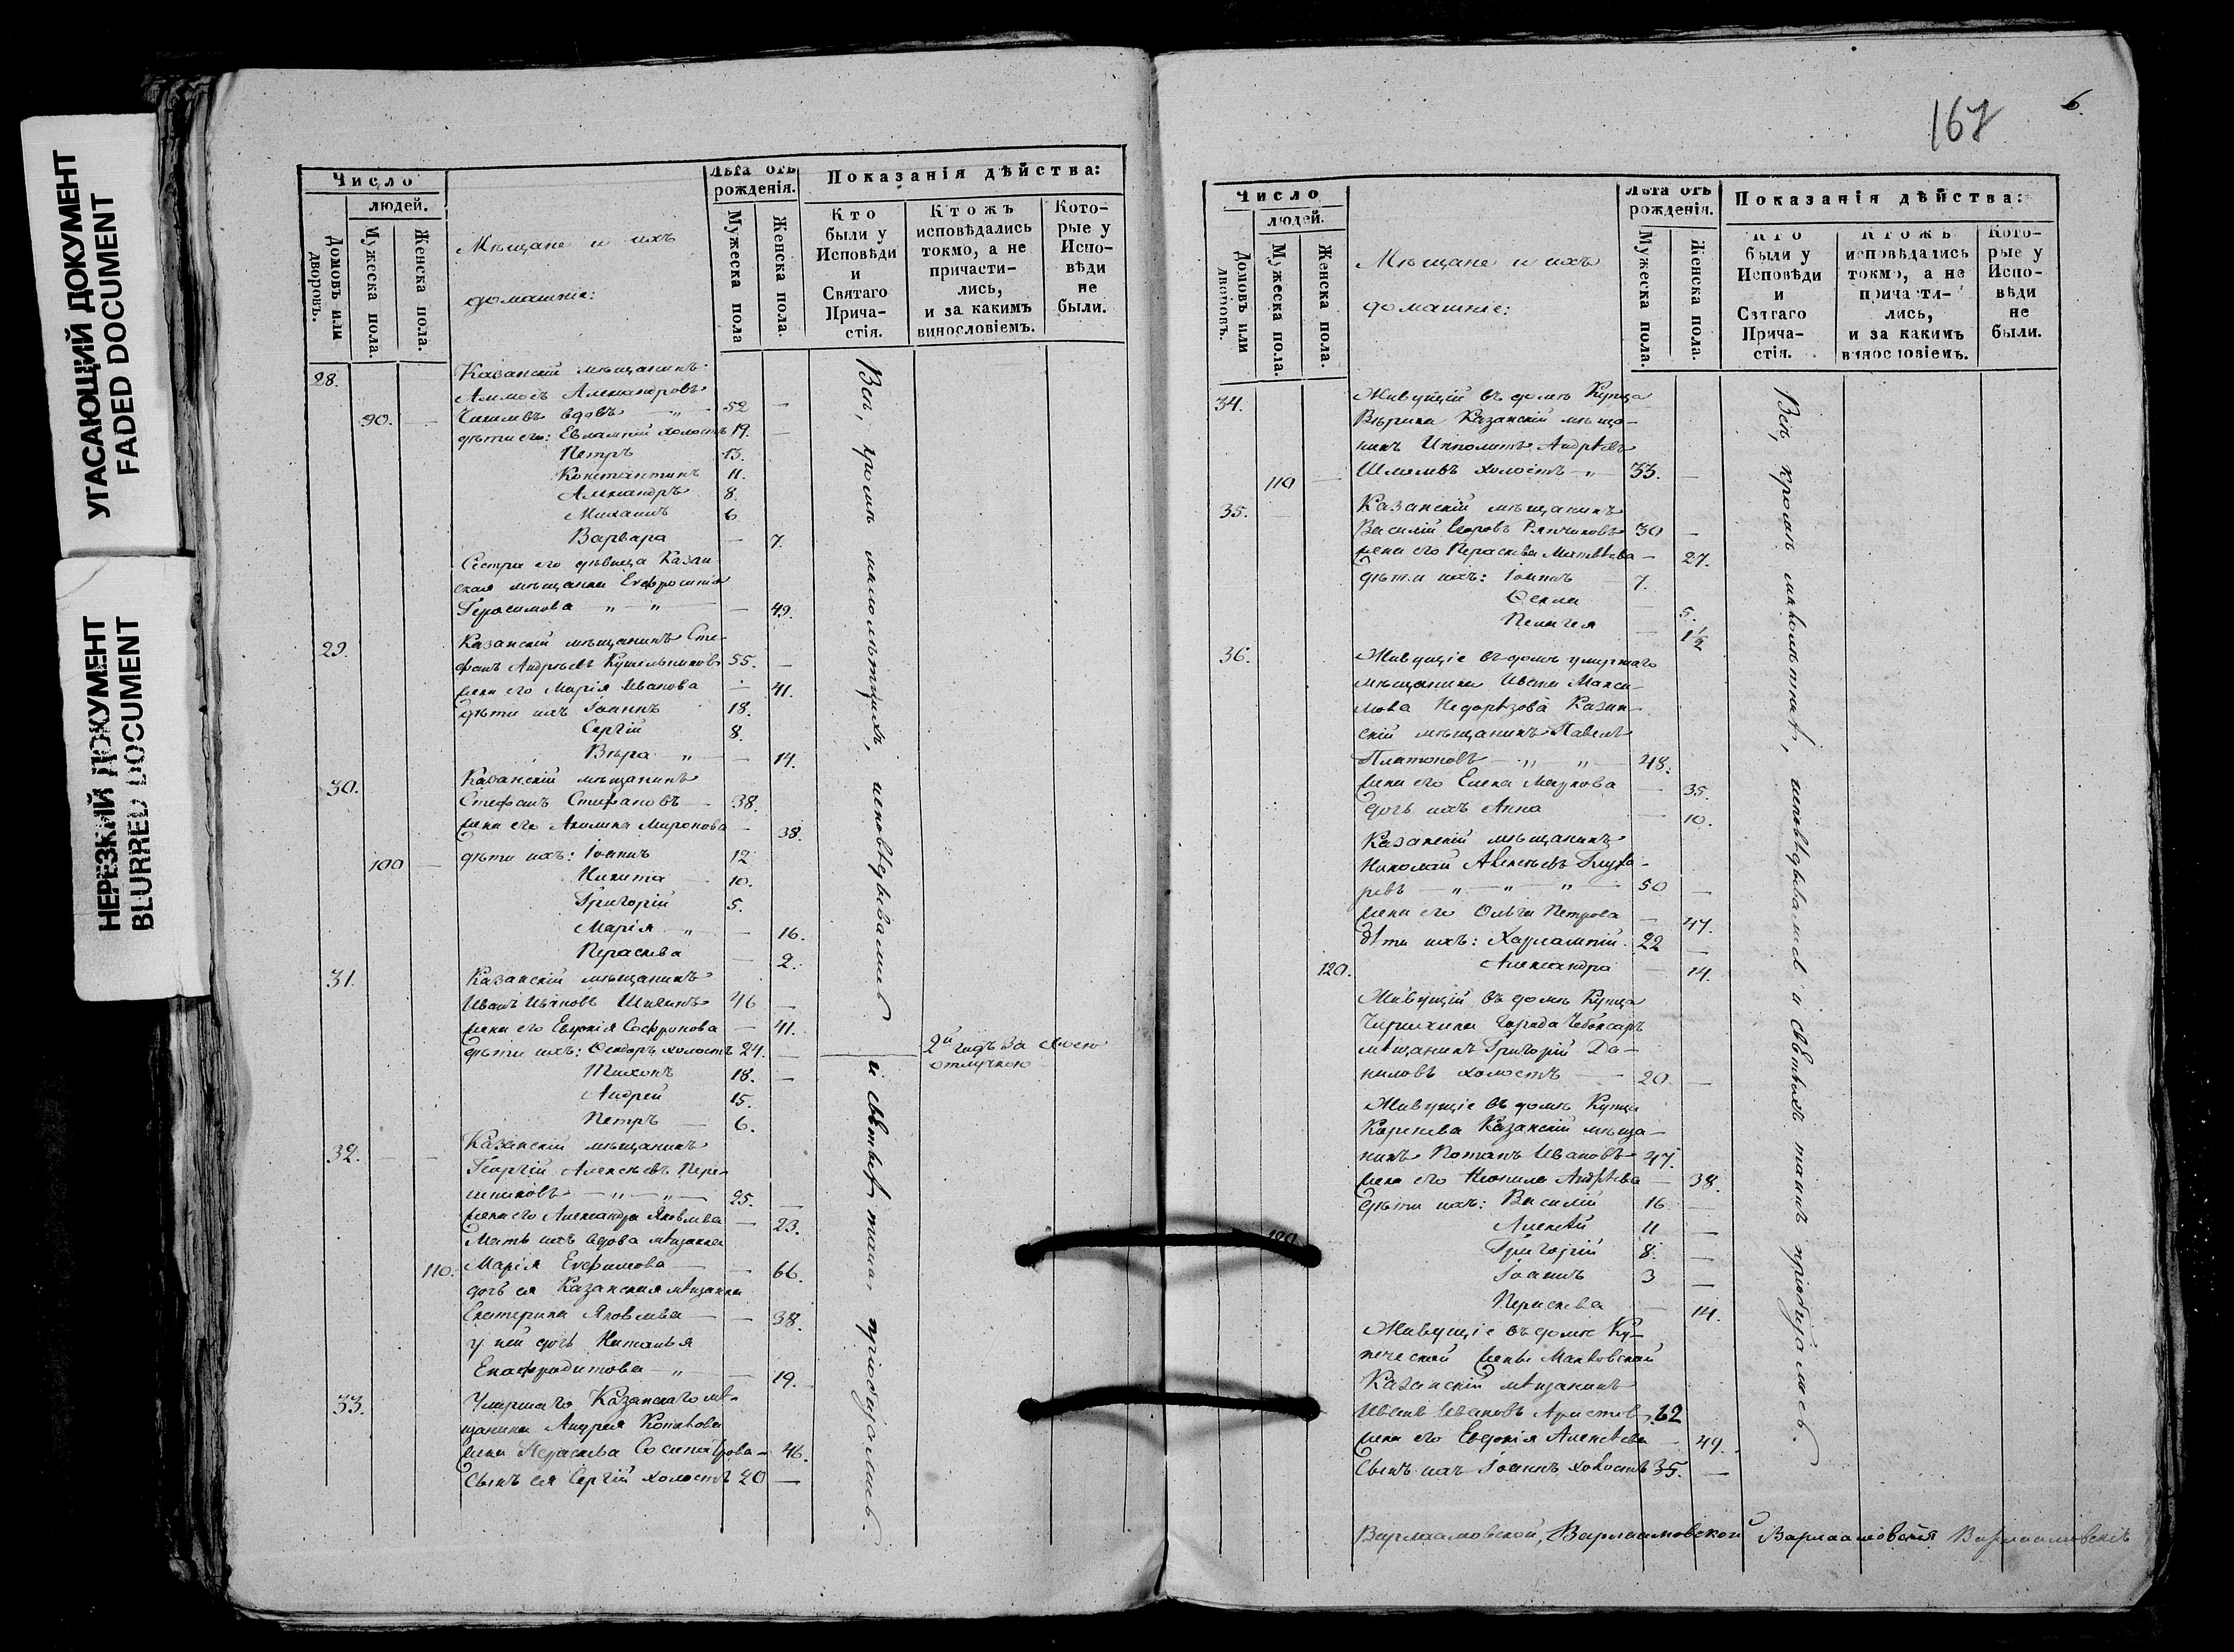 УГАСАЮЩИЙ ДОКУМЕНТ
FADED DOCUMENT
НЕРЕЗКИЙ ДОКУМЕНТ
BLURRED DOCUMENT
Число
людей.
Домовъ или дворовъ.
Мужеска пола.
Женска пола.
Мѣщане и ихъ
домашніе:
Лѣта отъ
рожденія.
Мужеска пола
Женска пола.
Показанія дѣйства:
Кто
были у
Исповѣди
и
Святаго
Прича-
стія.
Ктожъ
исповѣдались
токмо, а не
причасти-
лись,
и за какимъ
винословіемъ.
Кото-
рые у
Испо-
вѣди
не
были.
28. Казанскій мѣщанинъ
Александровъ
90. вдовъ 52
дѣти его: Евлампій холостъ 19.
Петръ 13.
Константинъ 11.
Александръ 8.
Михаилъ 6
Варвара 7.
Сестра его дѣвица Казан
ская мѣщанка Евфросинія
Герасимова 49.
29. Казанскій мѣщанинъ Сте-
фанъ Андреевъ 55.
жена его Марія Иванова 41.
дѣти ихъ Іоаннъ 18.
Сергій 8.
Вѣра 14.
30. Казанскій мѣщанинъ
Стефанъ Стефановъ 38.
жена его Акилина Миронова 38.
100 дѣти ихъ: Іоаннъ 12
Никита 10.
Григорій 5.
Марія 16.
Параскева 2.
31. Казанскій мѣщанинъ
Иванъ Ивановъ 46
жена его Евдокія Софронова 41.
дѣти ихъ: Ѳеодоръ холостъ 24. 2й годъ за своею
отлучкою
Тихонъ 18.
Андрей 15.
Петръ 6.
32. Казанскій мѣщанинъ
Георгій Алексѣевъ Пере-
25.
жена его Александра Яковлева 23.
Мать ихъ вдова мѣщанка
110. Марія Евфимова 66.
дочь ея Казанская мѣщанка
Екатерина Яковлева 38.
у ней дочь Наталья
Епафродитова 19.
33. Умершаго Казанскаго мѣ-
щанина Андрея
жена Параскева Сосипатрова 46.
Сынъ ея Сергій холостъ 20
Всѣ, кромѣ малолѣтнихъ, исповѣдывались и святыхъ таинъ пріобщались.
167
6.
Число
людей.
Домовъ или дворовъ.
Мужеска пола.
Женска пола.
Мѣщане и ихъ
домашніе:
Лѣта отъ
рожденія.
Мужеска пола.
Женска пола.
Показанія дѣйства:
Кто
были у
Исповѣди
и
Святаго
Прича-
стія.
Ктожъ
исповѣдались
токмо, а не
причасти-
лись,
и за какимъ
винословіемъ.
Кото-
рые у
Испо-
вѣди
не
были.
34. Живущій въ домѣ Купца
Казанскій мѣща-
нинъ Ипполитъ Андрѣевъ
110 холостъ 33.
35. Казанскій мѣщанинъ
Василій Егоровъ Рянчиковъ 30
жена его Параскева Матвѣева 27.
дѣти ихъ: Іоаннъ 7.
Ѳекла 5.
Пелагея 1½
36. Живущіе въ домѣ умершаго
мѣщанина Ивана Макси-
мова Недорѣзова Казан-
скій мѣщанинъ Павелъ
Платоновъ 48.
жена его Елена Маркова 35.
дочь ихъ Анна 10.
Казанскій мѣщанинъ
Николай Алексѣевъ Глуха-
ревъ 50
жена его Ольга Петрова 47.
дѣти ихъ: Харлампій 22
120. Александра 14.
Живущій въ домѣ Купца
города Чебоксаръ
мѣщанинъ Григорій Да-
ниловъ холостъ 20
Живущіе въ домѣ Купца
Казанскій мѣща-
нинъ Потапъ Ивановъ 47.
жена его Неонила Андрѣева 38.
дѣти ихъ: Василій 16
Алексѣй 11
120. Григорій 8.
Іоаннъ 3
Параскева 14.
Живущіе въ домѣ Ку-
печеской жены Маковской
Казанскій мѣщанинъ
Иванъ Ивановъ Аристовъ 62
жена его Евдокія Алексѣева 49.
Сынъ ихъ Іоаннъ холостъ 35.
Всѣ, кромѣ малолѣтнихъ, исповѣдывались и святыхъ таинъ пріобщались.
Варлаамовской, Варлаамовской Варлаамовская Варлаамовскія